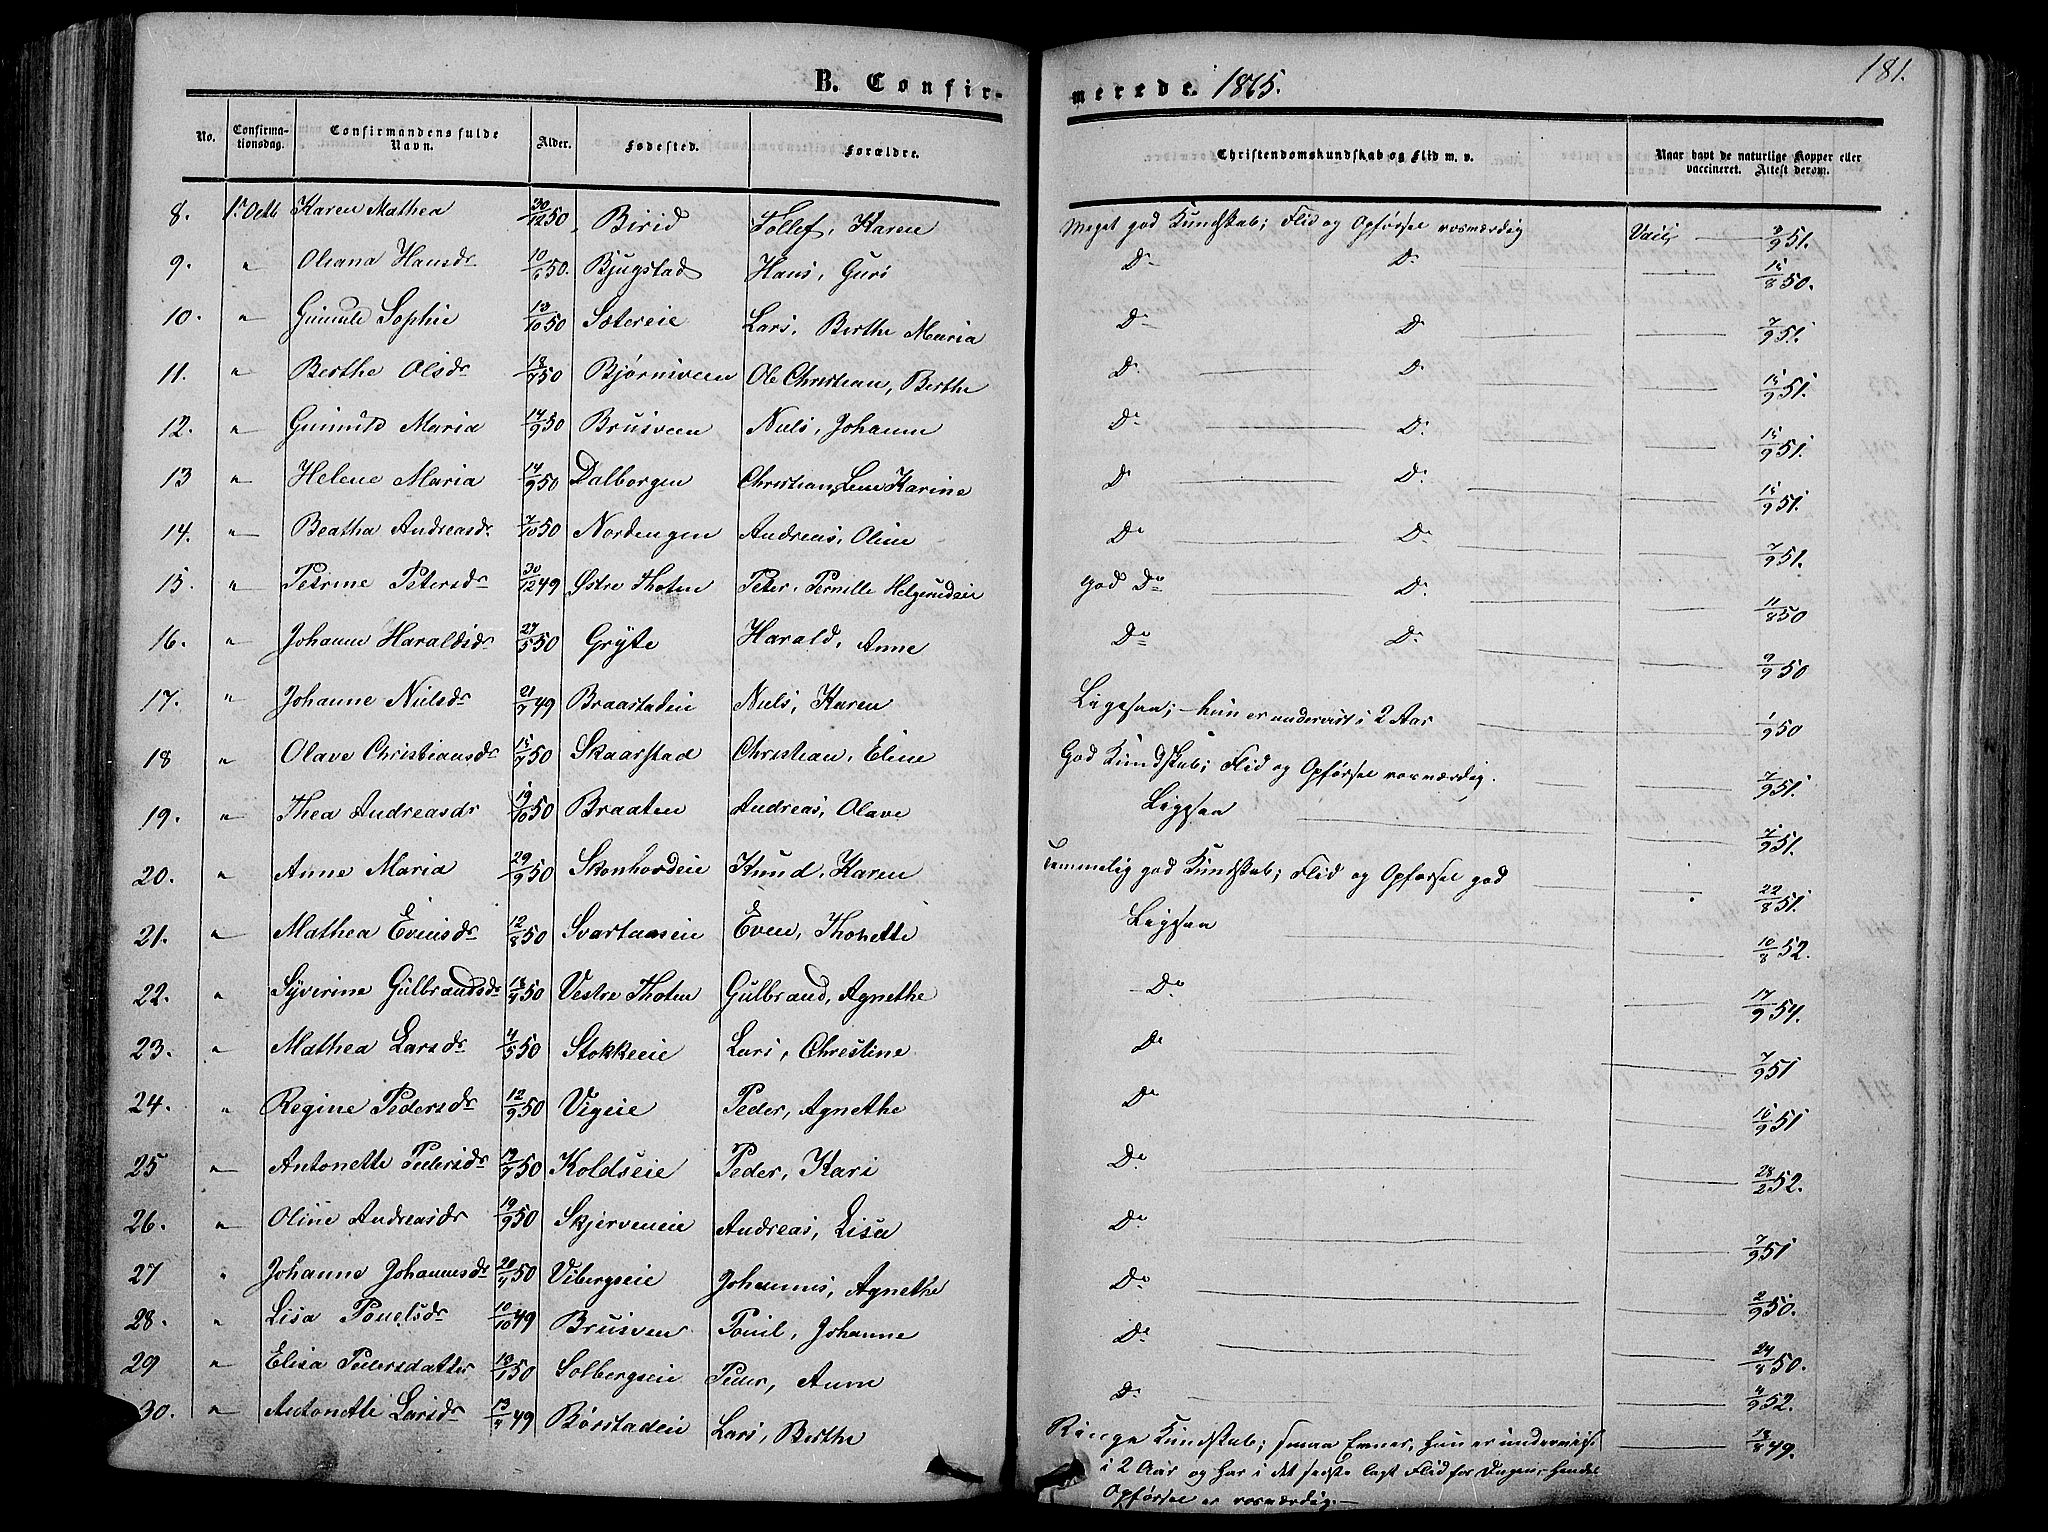 181.
B. Confir- merede. 1865.
No. Confirma- tionsdag. Confirmandens fulde Navn. Alder. Fødested. Forældre. Christendomskundskab og Flid m. v. Naar havt de naturlige Kopper eller vaccineret. Attest derom.
8. 1. Octb Karen Mathea 30/12 50 Birid Tollef, Karen Meget god Kundskab; Flid og Opførsel rosværdig Vacc 3/9 51.
9. " Oleana Hansdr 10/6 50. Bjugstad Hans, Guri Do Do 15/8 50.
10. " Gunnild Sophie 13/10 50 Sætereie Lars, Berthe Maria Do Do 7/9 51.
11. " Berthe Olsdr 50 Bjørnsveen Ole Christian, Berthe Do Do 15/9 51.
12. " Gunnild Maria 14/9 50 Brusveen Niels, Johanne Do Do 15/9 51.
13 " Helene Maria 14/9 50 Dalborgen Christian, Lene Karine Do Do 15/9 51.
14. " Beatha Andreasdr 7/10 50 Nordengen Andreas, Oline Do Do 7/9 51.
15. " Petrine Petersdr 30/12 49 Østre Thoten Peter, Pernille Helgerudeie god Do Do 11/8 50
16. " Johanne Haraldsdr 27/5 50 Gryte Harald, Anne Do Do 9/9 50
17. " Johanne Nielsdr 21/7 49 Braastadeie Niels, Karen Ligesaa; - hun er undervist i 2 Aar 1/9 50
18 " Olave Christiansdr 50 Skaarstad Christian, Eline God Kundskab; Flid og Opførsel rosværdig. 7/9 51.
19. " Thea Andreasdr 19/10 50 Braaten Andreas, Olave Ligesaa 7/9 51.
20. " Anne Maria 29/9 50 Skonhovdeie Knud, Karen Temmelig god Kundskab; Flid og Opførsel god 22/8 51.
21. " Mathea Evensdr 12/8 50 Svartaaseie Even, Thonette Ligesaa 10/8 52.
22. " Syverine Gulbrandsdr 50 Vestre Thoten Gulbrand, Agnethe Do 17/9 54.
23. " Mathea Larsdr 4/5 50 Stokkeeie Lars, Christine Do 7/9 51
24. " Regine Pedersdr 12/9 50 Vigeie Peder, Agnethe Do 16/9 51
25 " Antonette Pedersdr 50 Koldseie Peder, Kari Do 28/2 52.
26. " Oline Andreasdr 19/9 50 Skjerveneie Andreas, Lisa Do 7/9 51
27 " Johanne Johannesdr 50 Vibergseie Johannes, Agnethe Do 2/9 50.
28. " Lisa Pouelsdr 10/10 49 Brusven Pouil, Johanne Do 24/8 50.
29 " Elisa Pedersdatter 50 Solbergseie Peder, Anne Do 4/9 52.
30. " Antonette Larsdr 49 Børstadeie Lars, Berthe Ringe Kundskab; smaa Evner, hun er underviist 49.
i 2 Aar og har i det sidste lagt Flid for Dagen, hendes
Opførsel er rosværdig.-